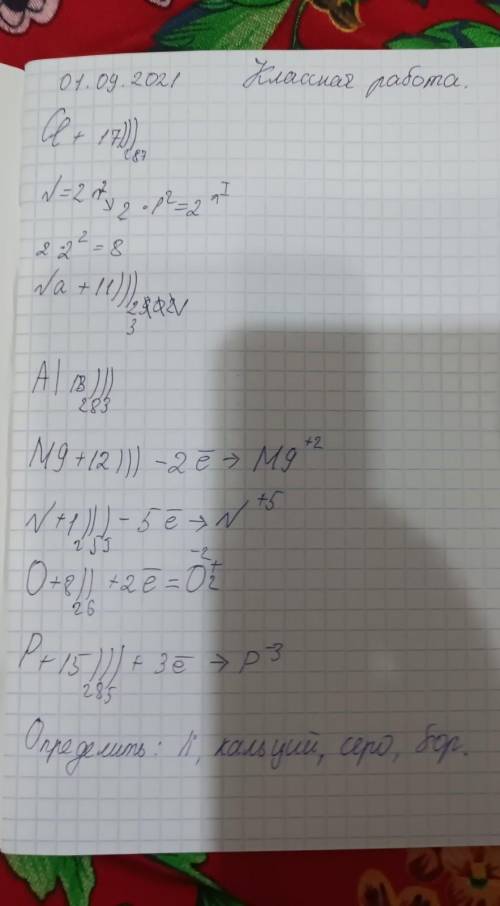 01.09.2021 Классная работа.
Cl + 17)))
287
N=2n² 2 · 1² = 2
2·2² = 8
Na + 11)))
3
Al 13)))
283
Mg + 12))) - 2ē → Mg⁺²
N + )) - 5ē → N⁺⁵
O + 8)) + 2ē =
26
P + 15))) + 3ē → P⁻³
285
Определить: кальций, серо, бор.